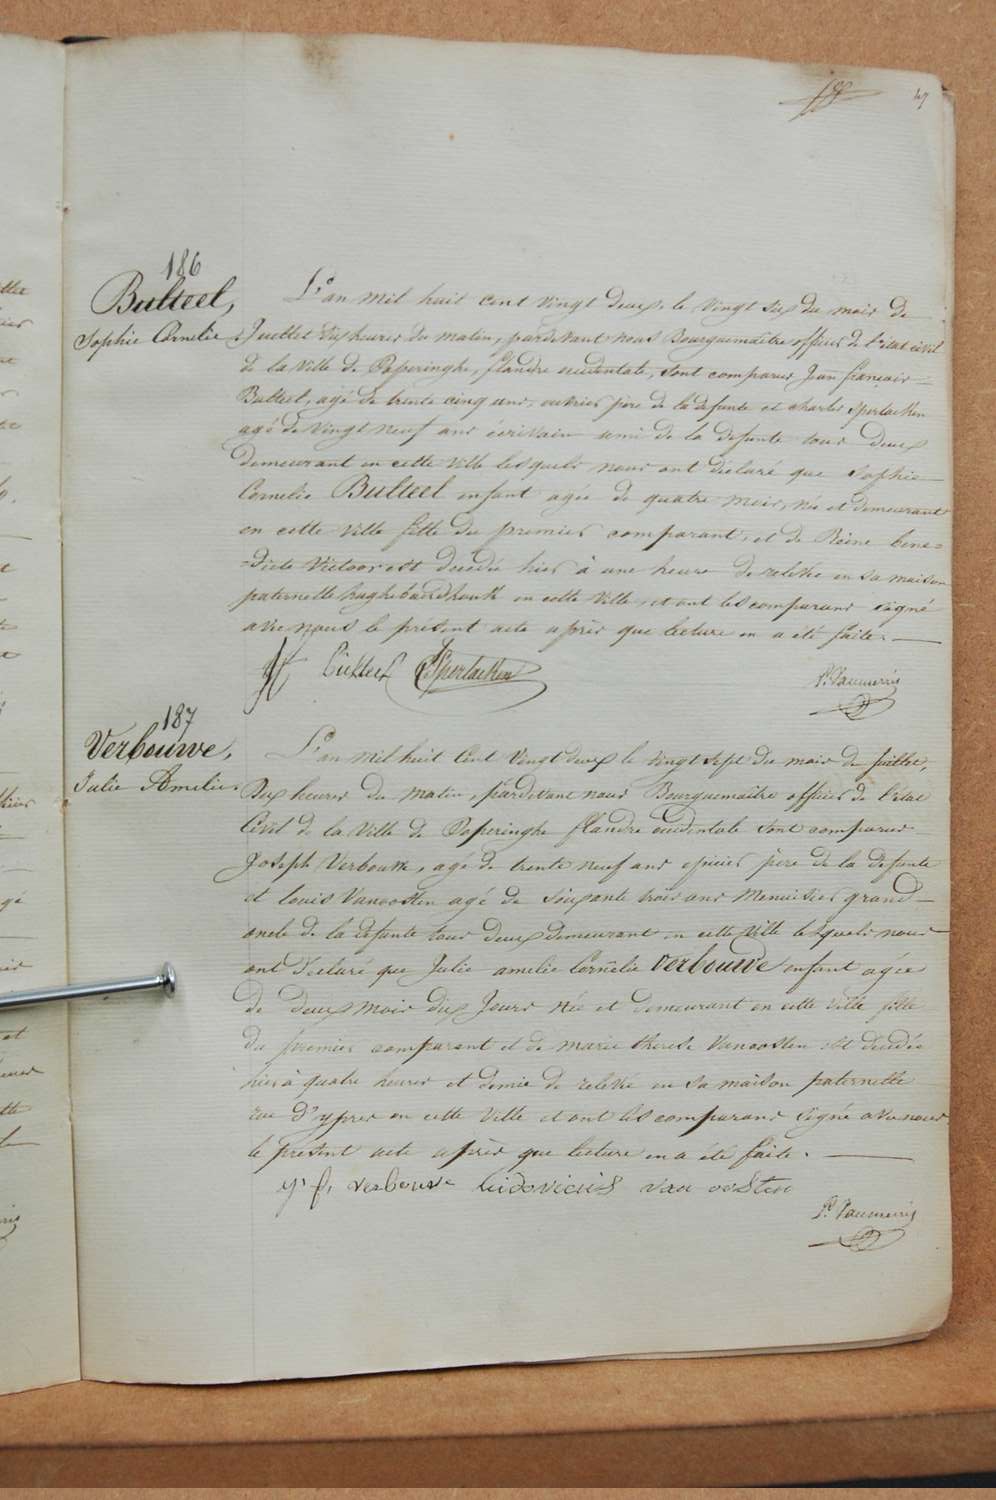 47
186
Bulteel,
Sophie Cornelie.
L'an mil huit cent vingt deux, le vingt six du mois de
Juillet dix heures du matin, pardevant nous Bourguemaitre officier de l'état civil
de la ville de Poperinghe, flandre occidentale, sont comparus Jean françois
Bulteel, agé de trente cinq ans, ouvrier père de la defunte et charles Sperlacken
agé de vingt neuf ans écrivain ami de la defunte tous deux
demeurant en cette ville lesquels nous ont déclaré que Sophie
Cornelie Bulteel enfant agée de quatre mois, née et demeurant
en cette ville fille du premier comparant, et de Reine bene=
=dicte Victoor est decedée hier à une heure de relevée en sa maison
paternelle en cette ville, et ont les comparans signé
avec nous le présent acte après que lecture en a été faite.
Sperlacken
P. Vanmerris
187
Verbouwe,
Julie Amelie.
L'an mil huit cent vingt deux le vingt sept du mois de juillet,
Dix heures du matin, pardevant nous Bourguemaître officier de l'état
Civil de la ville de Poperinghe flandre occidentale sont comparus
Joseph Verbouwe, agé de trente neuf ans epicier père de la defunte
et louis Vanoosten agé de soixante trois ans Menuisier grand
oncle de la defunte tous deux demeurant en cette ville lesquels nous
ont déclaré que Julie amelie Cornelie Verbouwe enfant agée
de deux mois dix Jours née et demeurant en cette ville fille
du premier comparant et de marie therese Vanoosten est decedée
hier à quatre heures et demie de relevée en sa maison paternelle
rue d'ypres en cette ville et ont les comparans signé avec nous
le présent acte après que lecture en a été faite.
verbouwe Ludovicus van oosten
P. Vanmerris